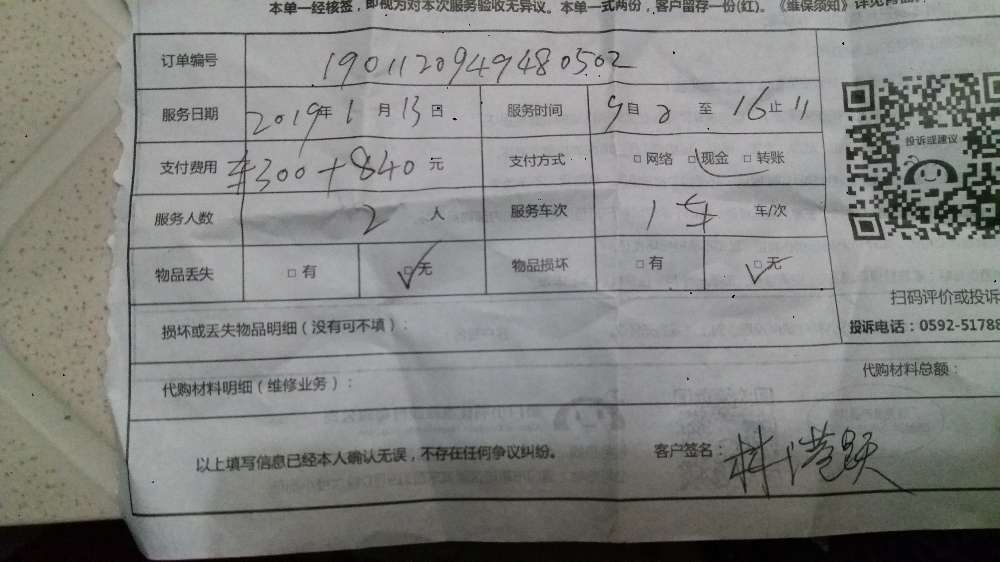 本单一经核签，即视为对本次服务验收无异议。本单一式两份，客户留存一份(红)。《维保须知》详见背面
订单编号 1901120949480502
服务日期 2019年1月13日. 服务时间 9自2至16止11
支付费用 ¥300+840元 支付方式 □网络 □现金 □转账
投诉或建议
服务人数 2人 服务车次 1车 车/次
物品丢失 □有 ☑无 物品损坏 □有 ☑无
扫码评价或投诉
损坏或丢失物品明细（没有可不填）：
投诉电话：0592-51788
代购材料明细（维修业务）：
代购材料总额：
以上填写信息已经本人确认无误，不存在任何争议纠纷。
客户签名：林